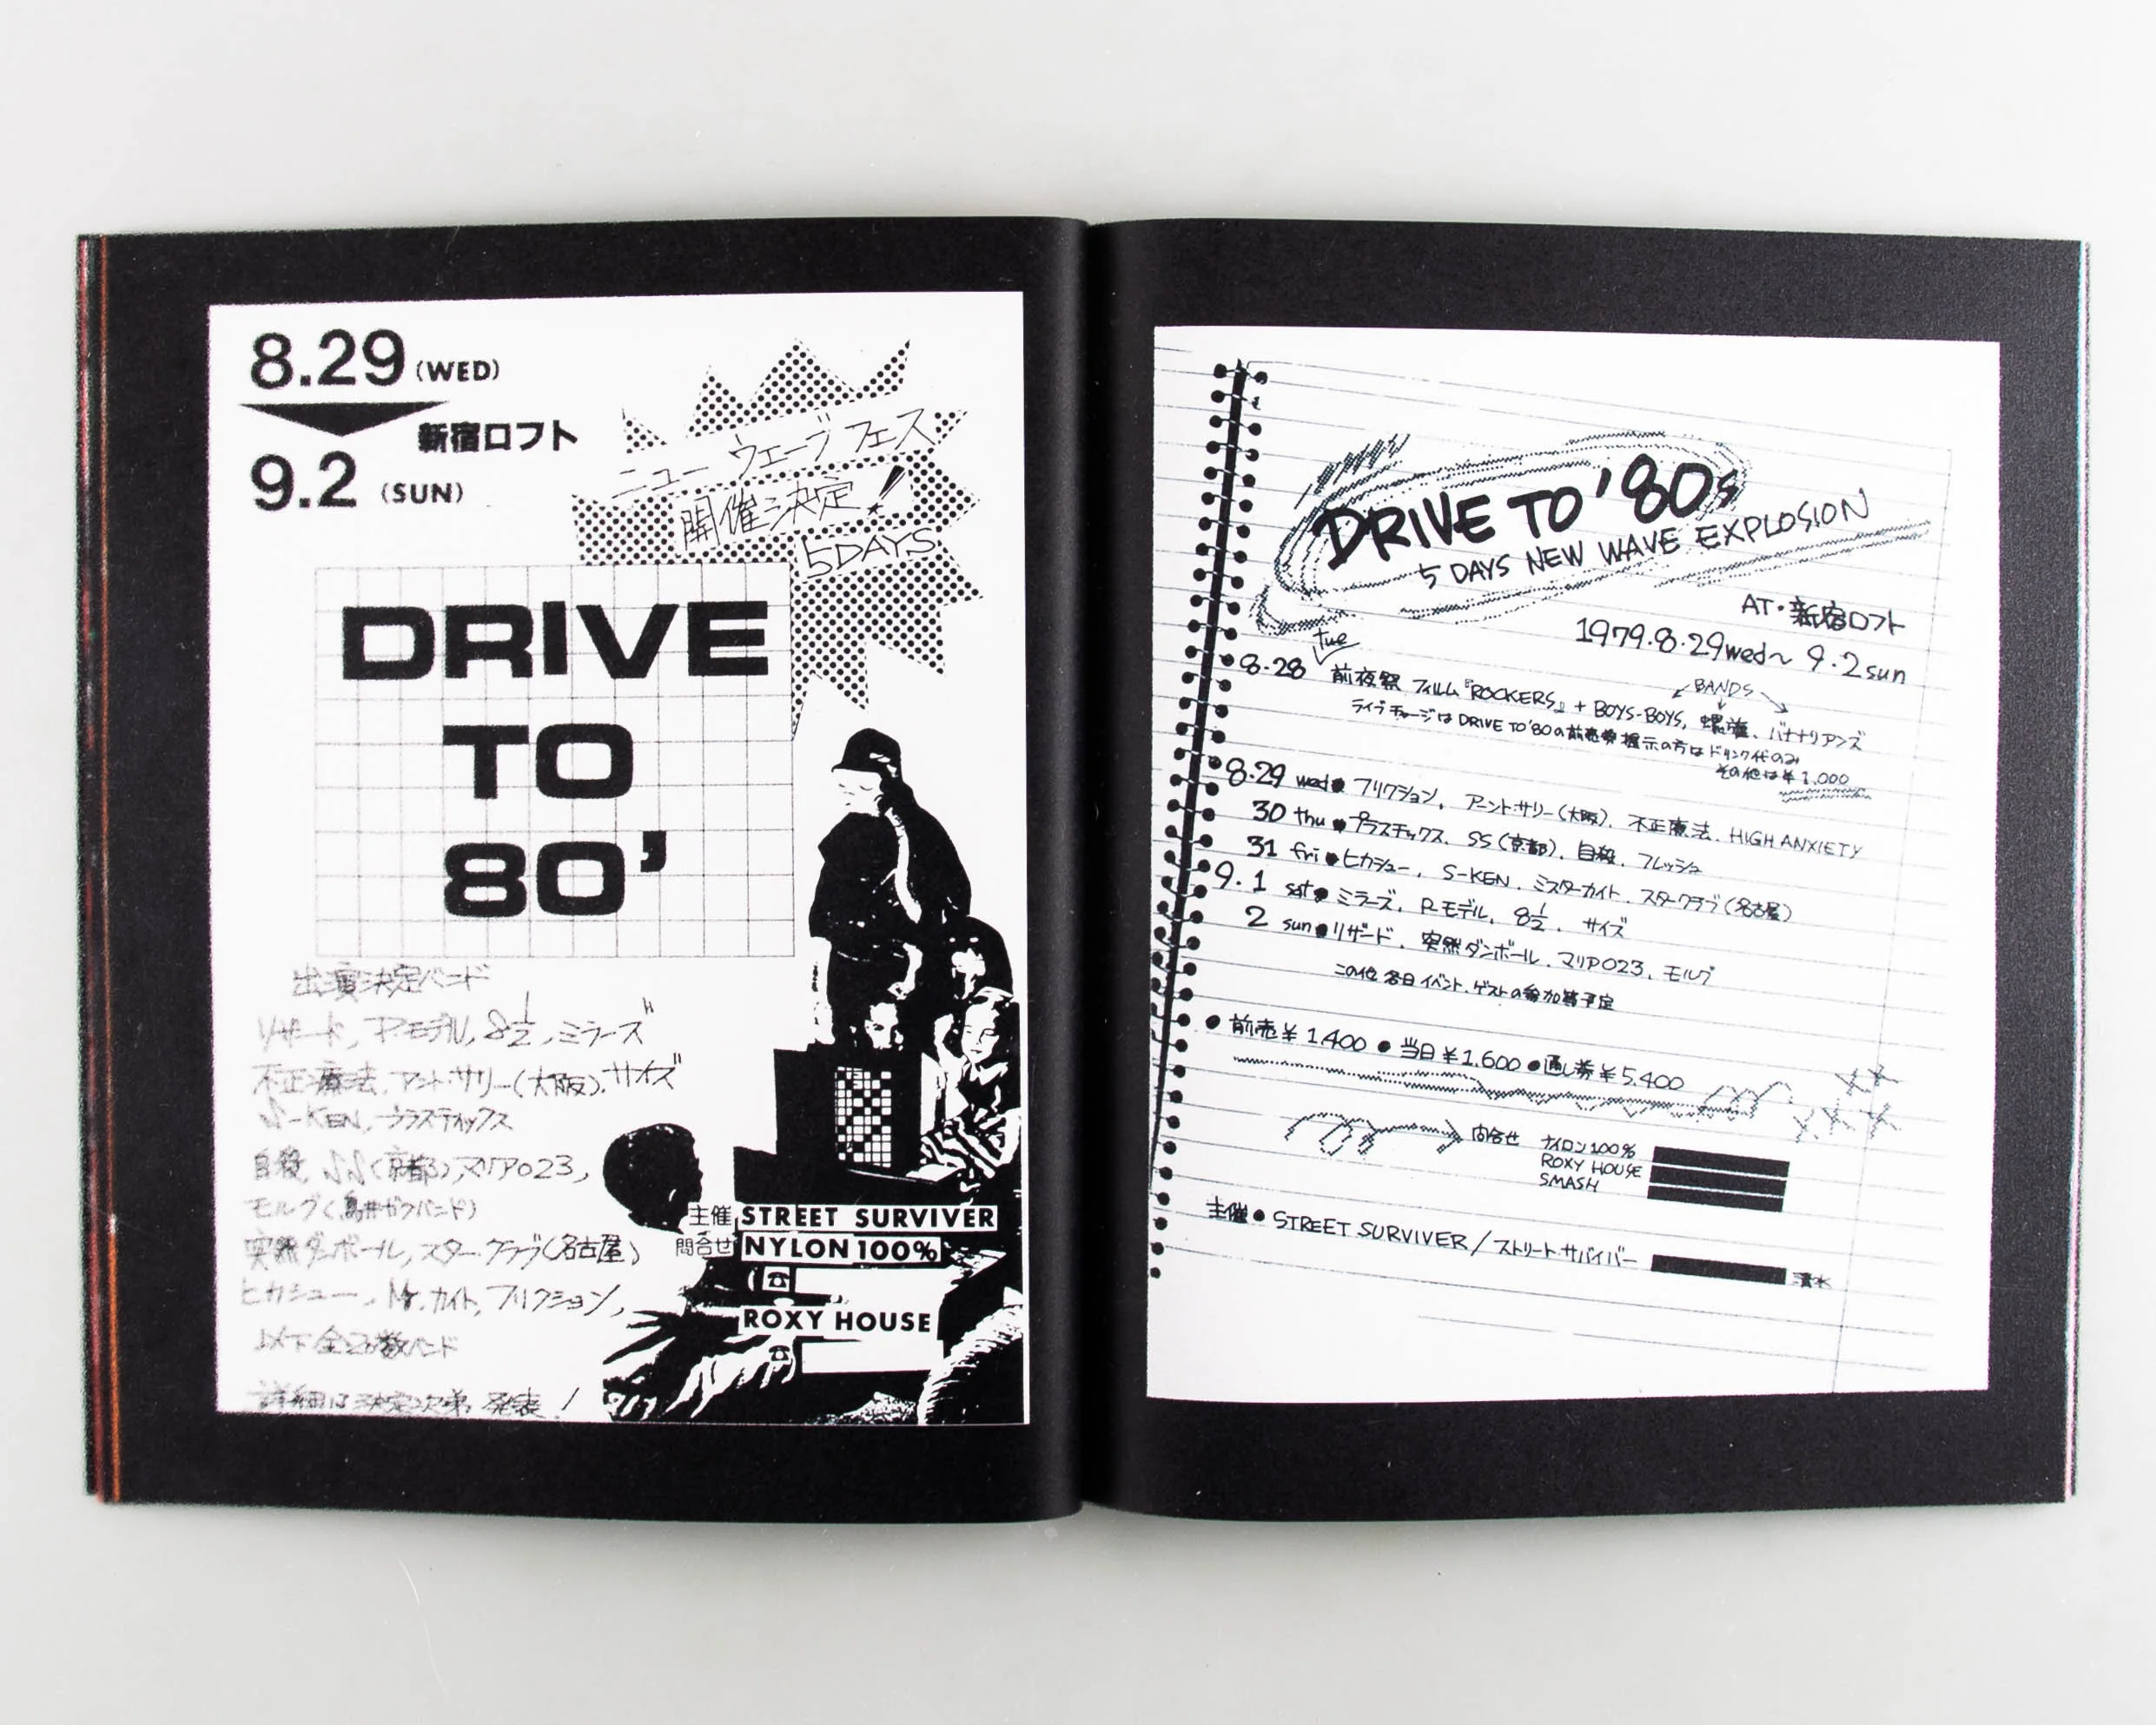 8.29 (WED)
新宿ロフト
9.2 (SUN)
ニュー ウェーブ フェス
開催決定!
5DAYS
DRIVE
TO
80'
出演決定バンド
リザード, P.モデル, 8½, ミラーズ
不正療法, アント・サリー(大阪), サイズ
S-KEN, プラスティックス
自殺, SS(京都), マリア023,
モルグ(鳥井ガクバンド)
突然ダンボール, スター・クラブ(名古屋)
ヒカシュー, Mr.カイト, フリクション,
以下全20数バンド
詳細は決定次第, 発表!
主催 STREET SURVIVER
問合せ NYLON 100%
(☎
ROXY HOUSE
☎
DRIVE TO '80s
5 DAYS NEW WAVE EXPLOSION
AT・新宿ロフト
1979.8.29wed~ 9.2sun
tue
BANDS
8.28 前夜祭 フィルム『ROCKERS』+ BOYS-BOYS, 螺旋、バナナリアンズ
ライブチャージは DRIVE TO '80の前売券提示の方はドリンク代のみ
その他は¥1,000
8.29 wed● フリクション, アーント・サリー(大阪), 不正療法, HIGH ANXIETY
30 thu ● プラスチックス, SS(京都), 自殺, フレッシュ
31 fri ● ヒカシュー, S-KEN, ミスターカイト, スタークラブ(名古屋)
9.1 sat ● ミラーズ, P.モデル, 8½, サイズ
2 sun ● リザード, 突然ダンボール, マリア023, モルグ
この他 各日イベント、ゲストの参加等予定
● 前売¥1,400 ● 当日¥1,600 ● 通し券¥5,400
問合せ ナイロン100%
ROXY HOUSE
SMASH
主催 ● STREET SURVIVER / ストリートサバイバー 清水